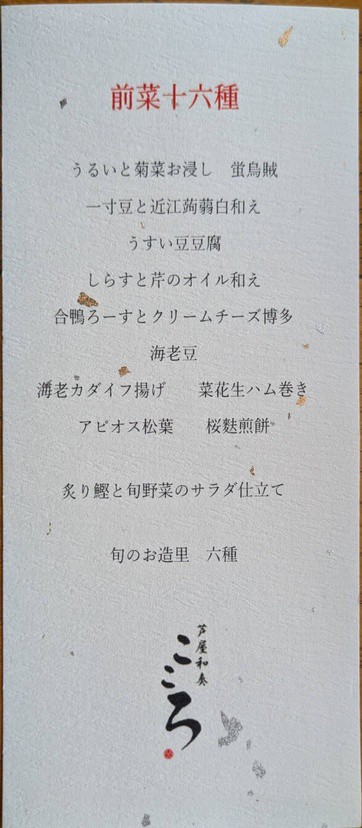 前菜十六種
うるいと菊菜お浸し　蛍烏賊
一寸豆と近江蒟蒻白和え
うすい豆豆腐
しらすと芹のオイル和え
合鴨ろーすとクリームチーズ博多
海老豆
海老カダイフ揚げ　　菜花生ハム巻き
アピオス松葉　　桜麩煎餅
炙り鰹と旬野菜のサラダ仕立て
旬のお造里　六種
芦屋和奏
こころ